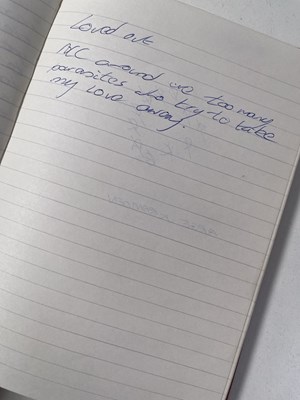 Loved out
All around are too many
parasites who try to take
my love away.